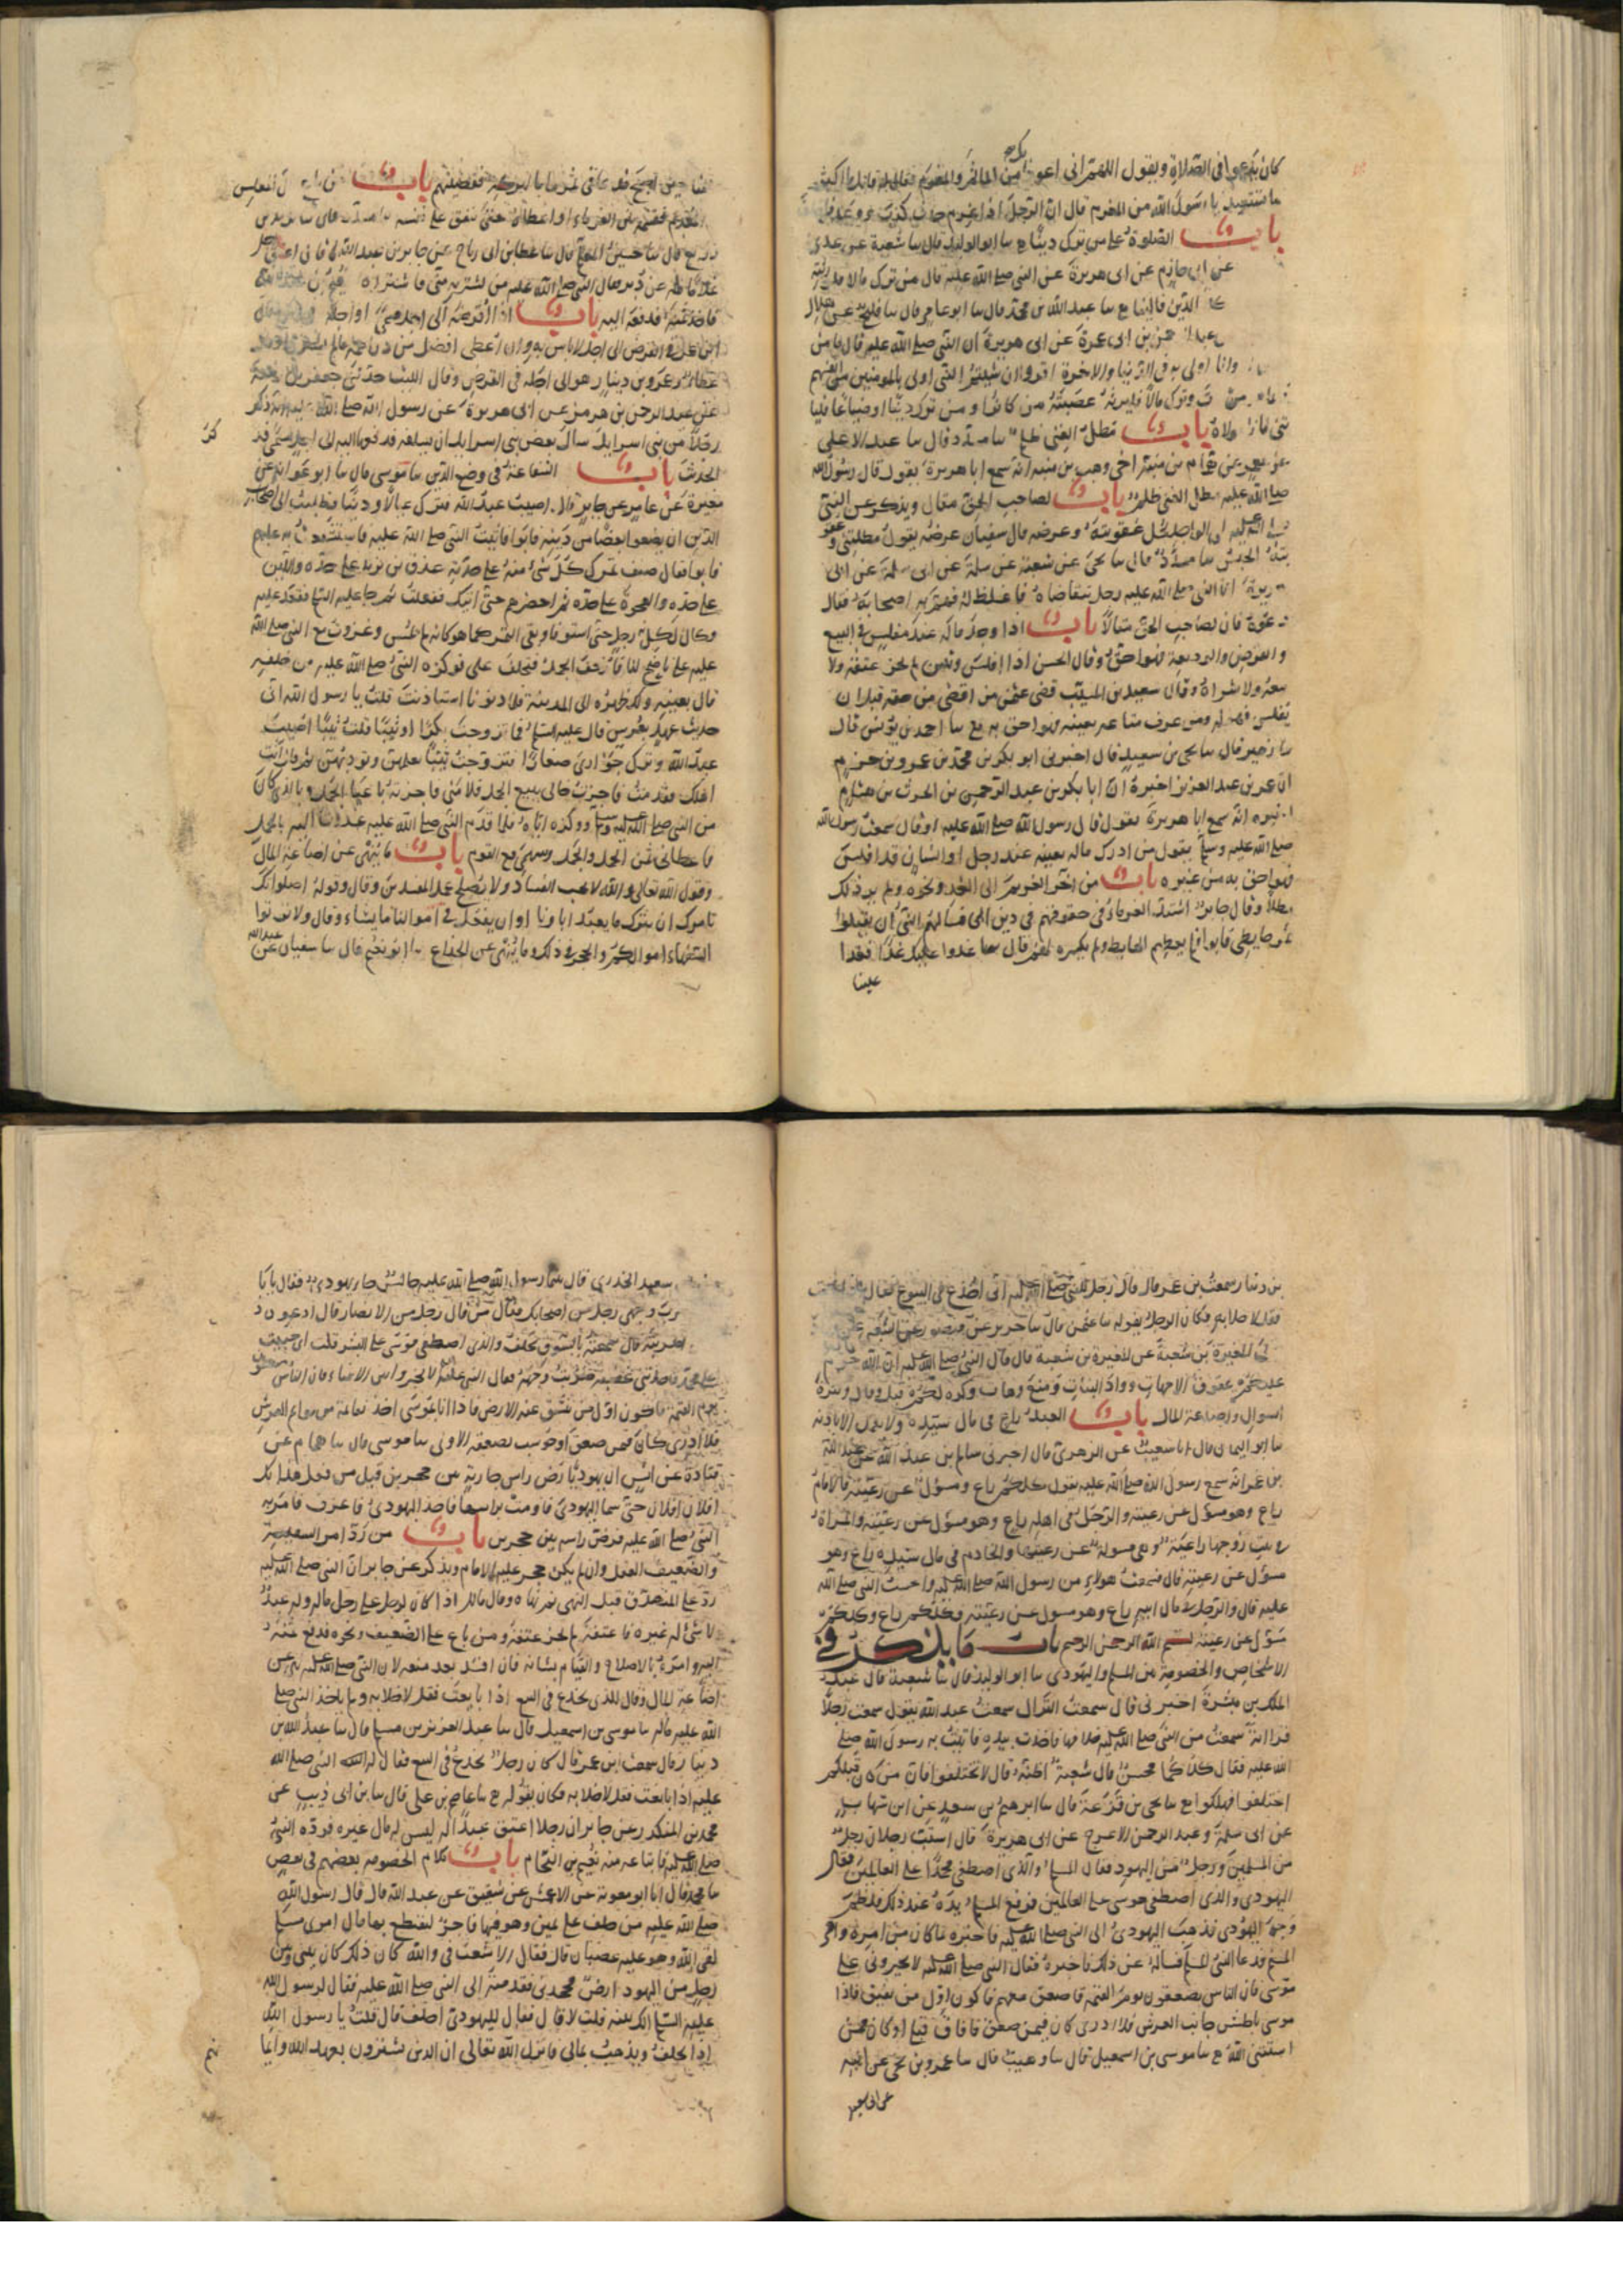 كان يدعوا في الصلاة ويقول اللهم اني اعوذ بك من المأثم والمغرم فقال له قائل ما اكثر
ما تستعيذ يا رسول الله من المغرم قال ان الرجل اذا غرم حدث كذب ووعد فاخلف
باب الصلوة على من ترك دينا ع سا ابو الوليد قال سا شعبة عن عدي
عن ابي حازم عن ابي هريرة عن النبي صلى الله عليه قال من ترك مالا فلورثته
الينا ع سا عبد الله بن محمد قال سا ابو عامر قال سا فليح عن هلال
بن ابي عمرة عن ابي هريرة ان النبي صلى الله عليه قال ما من
وانا اولى به في الدنيا والاخرة اقروا ان شيتم النبي اولى بالمومنين من انفسهم
وترك مالا فليرثه عصبته من كانوا ومن ترك دينا او ضياعا فليا
تني فانا مولاه باب مطل الغني ظلم سا مسدد قال سا عبد الاعلى
عن معمر عن همام بن منبه اخي وهب بن منبه انه سمع ابا هريرة يقول قال رسول الله
صلى الله عليه مطل الغني ظلم باب لصاحب الحق مقال ويذكر عن النبي
صلى الله عليه لي الواجد يحل عقوبته وعرضه قال سفيان عرضه يقول مطلتني وعقو
بته الحبس سا مسدد قال سا يحيى عن شعبة عن سلمة عن ابي سلمة عن ابي
هريرة اتى النبي صلى الله عليه رجل يتقاضاه فاغلظ له فهم به اصحابه فقال
دعوه فان لصاحب الحق مقالا باب اذا وجد ماله عند مفلس في البيع
والقرض والوديعة فهو احق وقال الحسن اذا افلس وتبين لم يجز عتقه ولا
بيعه ولا شراه وقال سعيد بن المسيب قضى عثمن من اقتضى من حقه قبل ان
يفلس فهو له ومن عرف متاعه بعينه فهو احق به ع سا احمد بن يونس قال
سا زهير قال سا يحيى بن سعيد قال اخبرني ابو بكر بن محمد بن عمرو بن حزم
ان عمر بن عبد العزيز اخبره ان ابا بكر بن عبد الرحمن بن الحرث بن هشام
اخبره انه سمع ابا هريرة يقول قال رسول الله صلى الله عليه او قال سمعت رسول الله
صلى الله عليه وسلم يقول من ادرك ماله بعينه عند رجل او انسان قد افلس
فهو احق به من غيره باب من اخر الغريم الى الغد ونحوه ولم ير ذلك
مطلا وقال جابر اشتد الغرماء في حقوقهم في دين ابي فسألهم النبي ان يقبلوا
ثمر حايطي فابوا فلم يعطهم الحايط ولم يكسره لهم قال سا غدوا عليك غدا فغدا
علينا
حين اصبح فدعا في ثمرها بالبركة فقضيتهم باب من باع مال المفلس
او المعدم فقسمه بين الغرماء او اعطاه حتى ينفق على نفسه سا مسدد قال سا يزيد بن
زريع قال سا حسين المعلم قال سا عطا بن ابي رباح عن جابر بن عبد الله قال اعتق رجل
غلاما له عن دبر فقال النبي صلى الله عليه من يشتريه مني فاشتراه نعيم بن عبد الله
فاخذ ثمنه فدفعه اليه باب اذا اقرضه الى اجل مسمى او اجله في البيع وقال
ابن عمر في القرض الى اجل لا باس به وان اعطى افضل من دراهمه ما لم يشترط وقال
عطاء وعمرو بن دينار هو الى اجله في القرض وقال الليث حدثني جعفر بن ربيعة
عن عبد الرحمن بن هرمز عن ابي هريرة عن رسول الله صلى الله عليه انه ذكر
رجلا من بني اسرايل سال بعض بني اسرايل ان يسلفه فدفعها اليه الى اجل مسمى فذ
الحديث باب الشفاعة في وضع الدين سا موسى قال سا ابو عوانة عن
مغيرة عن عامر عن جابر قال اصيب عبد الله فترك عيالا ودينا فطلبت الى اصحاب
الدين ان يضعوا بعضا من دينه فابوا فاتيت النبي صلى الله عليه فاستشفعت به عليهم
فابوا فقال صنف تمرك كل شيء منه على حدته عذق بن زيد على حده واللين
على حده والعجوة على حده ثم احضرهم حتى اتيك ففعلت ثم جا عليه السلم فقعد عليه
وكال لكل رجل حتى استوفا وبقي التمر كما هو كانه لم يمس وغزوت مع النبي صلى الله
عليه على ناضح لنا فازحف الجمل فتخلف علي فوكزه النبي صلى الله عليه من خلفه
قال بعنيه ولك ظهره الى المدينة فلما دنونا استاذنت قلت يا رسول الله اني
حديث عهد بعرس قال عليه السلم فما تزوجت بكرا او ثيبا قلت ثيبا اصيب
عبد الله وترك جواري صغارا فتزوجت ثيبا تعلمهن وتؤدبهن ثم قال ائت
اهلك فقدمت فاخبرت خالي ببيع الجمل فلامني فاخبرته باعياء الجمل وبالذي كان
من النبي صلى الله عليه وسلم ووكزه اياه فلما قدم النبي صلى الله عليه غدوت اليه بالجمل
فاعطاني ثمن الجمل والجمل وسهمي مع القوم باب ما ينهى عن اضاعة المال
وقول الله تعالى والله لا يحب الفساد ولا يصلح عمل المفسدين وقال وقوله اصلواتك
تامرك ان نترك ما يعبد اباونا او ان نفعل في اموالنا ما نشاء وقال ولا توتوا
السفهاء اموالكم والحجر في ذلك وما ينهى عن الخداع سا ابو نعيم قال سا سفيان عن عبد الله
بن دينار سمعت بن عمر قال قال رجل للنبي صلى الله عليه اني اخدع في البيوع فقال
فقل لا خلابة فكان الرجل يقوله سا عثمن قال سا جرير عن منصور عن الشعبي عن
المغيرة بن شعبة عن المغيرة بن شعبة قال قال النبي صلى الله عليه ان الله حرم
عليكم عقوق الامهات وواد البنات ومنع وهات وكره لكم قيل وقال وكثرة
السوال واضاعة المال باب العبد راع في مال سيده ولا يعمل الا باذنه
سا ابو اليمان قال انا شعيب عن الزهري قال اخبرني سالم بن عبد الله عن عبد الله
بن عمر انه سمع رسول الله صلى الله عليه يقول كلكم راع ومسؤل عن رعيته فالامام
راع وهو مسؤل عن رعيته والرجل في اهله راع وهو مسؤل عن رعيته والمراة
في بيت زوجها راعية وهي مسولة عن رعيتها والخادم في مال سيده راع وهو
مسؤل عن رعيته قال فسمعت هولاء من رسول الله صلى الله عليه واحسب النبي صلى الله
عليه قال والرجل في مال ابيه راع وهو مسول عن رعيته فكلكم راع وكلكم
مسؤل عن رعيته بسم الله الرحمن الرحيم باب ما يذكر في
الاشخاص والخصومة بين المسلم واليهودي سا ابو الوليد قال سا شعبة قال عبد
الملك بن ميسرة اخبرني قال سمعت النزال سمعت عبد الله يقول سمعت رجلا
قرا اية سمعت من النبي صلى الله عليه خلافها فاخذت بيده فاتيت به رسول الله صلى
الله عليه فقال كلاكما محسن قال شعبة اظنه قال لا تختلفوا فان من كان قبلكم
اختلفوا فهلكوا ع سا يحيى بن قزعة قال سا ابرهيم بن سعد عن ابن شهاب
عن ابي سلمة وعبد الرحمن الاعرج عن ابي هريرة قال استب رجلان رجل
من المسلمين ورجل من اليهود فقال المسلم والذي اصطفى محمدا على العالمين فقال
اليهودي والذي اصطفى موسى على العالمين فرفع المسلم يده عند ذلك فلطم
وجه اليهودي فذهب اليهودي الى النبي صلى الله عليه فاخبره بما كان من امره وامر
المسلم فدعا النبي المسلم فساله عن ذلك فاخبره فقال النبي صلى الله عليه لا تخيروني على
موسى فان الناس يصعقون يوم القيمة فاصعق معهم فاكون اول من يفيق فاذا
موسى باطش جانب العرش فلا ادري كان فيمن صعق فافاق قبلي او كان ممن
استثنى الله ع سا موسى بن اسمعيل قال سا وهيب قال سا عمرو بن يحيى عن ابيه
عن ابي سعيد
سعيد الخدري قال بينما رسول الله صلى الله عليه جالس جا يهودي فقال يا ابا
ضرب وجهي رجل من اصحابك فقال من قال رجل من الانصار قال ادعوه
اضربته قال سمعته بالسوق يحلف والذي اصطفى موسى على البشر قلت اي خبيث
على محمد فاخذتني غضبة ضربت وجهه فقال النبي عليه لا تخيروا بين الانبياء فان الناس يصعقون
يوم القيمة فاكون اول من تنشق عنه الارض فاذا انا بموسى اخذ بقايمة من قوايم العرش
فلا ادري كان فيمن صعق او حوسب بصعقة الاولى سا موسى قال سا همام عن
قتادة عن انس ان يهوديا رض راس جارية بين حجرين قيل من فعل هذا بك
افلان افلان حتى سما اليهودي فاومت براسها فاخذ اليهودي فاعترف فامر به
النبي صلى الله عليه فرض راسه بين حجرين باب من رد امر السفيه
والضعيف العقل وان لم يكن حجر عليه الامام ويذكر عن جابر ان النبي صلى الله عليه
رد على المتصدق قبل النهي ثم نهاه وقال مالك اذا كان لرجل على رجل مال وله عبد
لا شيء له غيره فاعتقه لم يجز عتقه ومن باع على الضعيف ونحوه فدفع ثمنه
اليه وامره بالاصلاح والقيام بشانه فان افسد بعد منعه لان النبي صلى الله عليه نهى عن
اضاعة المال وقال للذي يخدع في البيع اذا بايعت فقل لا خلابة ولم ياخذ النبي صلى
الله عليه ماله سا موسى بن اسمعيل قال سا عبد العزيز بن مسلم قال سا عبد الله بن
دينار قال سمعت ابن عمر قال كان رجل يخدع في البيع فقال له النبي صلى الله
عليه اذا بايعت فقل لا خلابة فكان يقوله ع سا عاصم بن علي قال سا بن ابي ذيب عن
محمد بن المنكدر عن جابر ان رجلا اعتق عبدا له ليس له مال غيره فرده النبي
صلى الله عليه فابتاعه منه نعيم بن النحام باب كلام الخصوم بعضهم في بعض
سا محمد قال انا ابو معوية عن الاعمش عن شقيق عن عبد الله قال قال رسول الله
صلى الله عليه من حلف على يمين وهو فيها فاجر ليقتطع بها مال امرى مسلم
لقي الله وهو عليه غضبان قال فقال الاشعث في والله كان ذلك كان بيني وبين
رجل من اليهود ارض فجحدني فقدمته الى النبي صلى الله عليه فقال لي رسول الله
عليه السلم الك بينة قلت لا قال فقال لليهودي احلف قال قلت يا رسول الله
اذا يحلف ويذهب بمالي فانزل الله تعالى ان الذين يشترون بعهد الله وايما